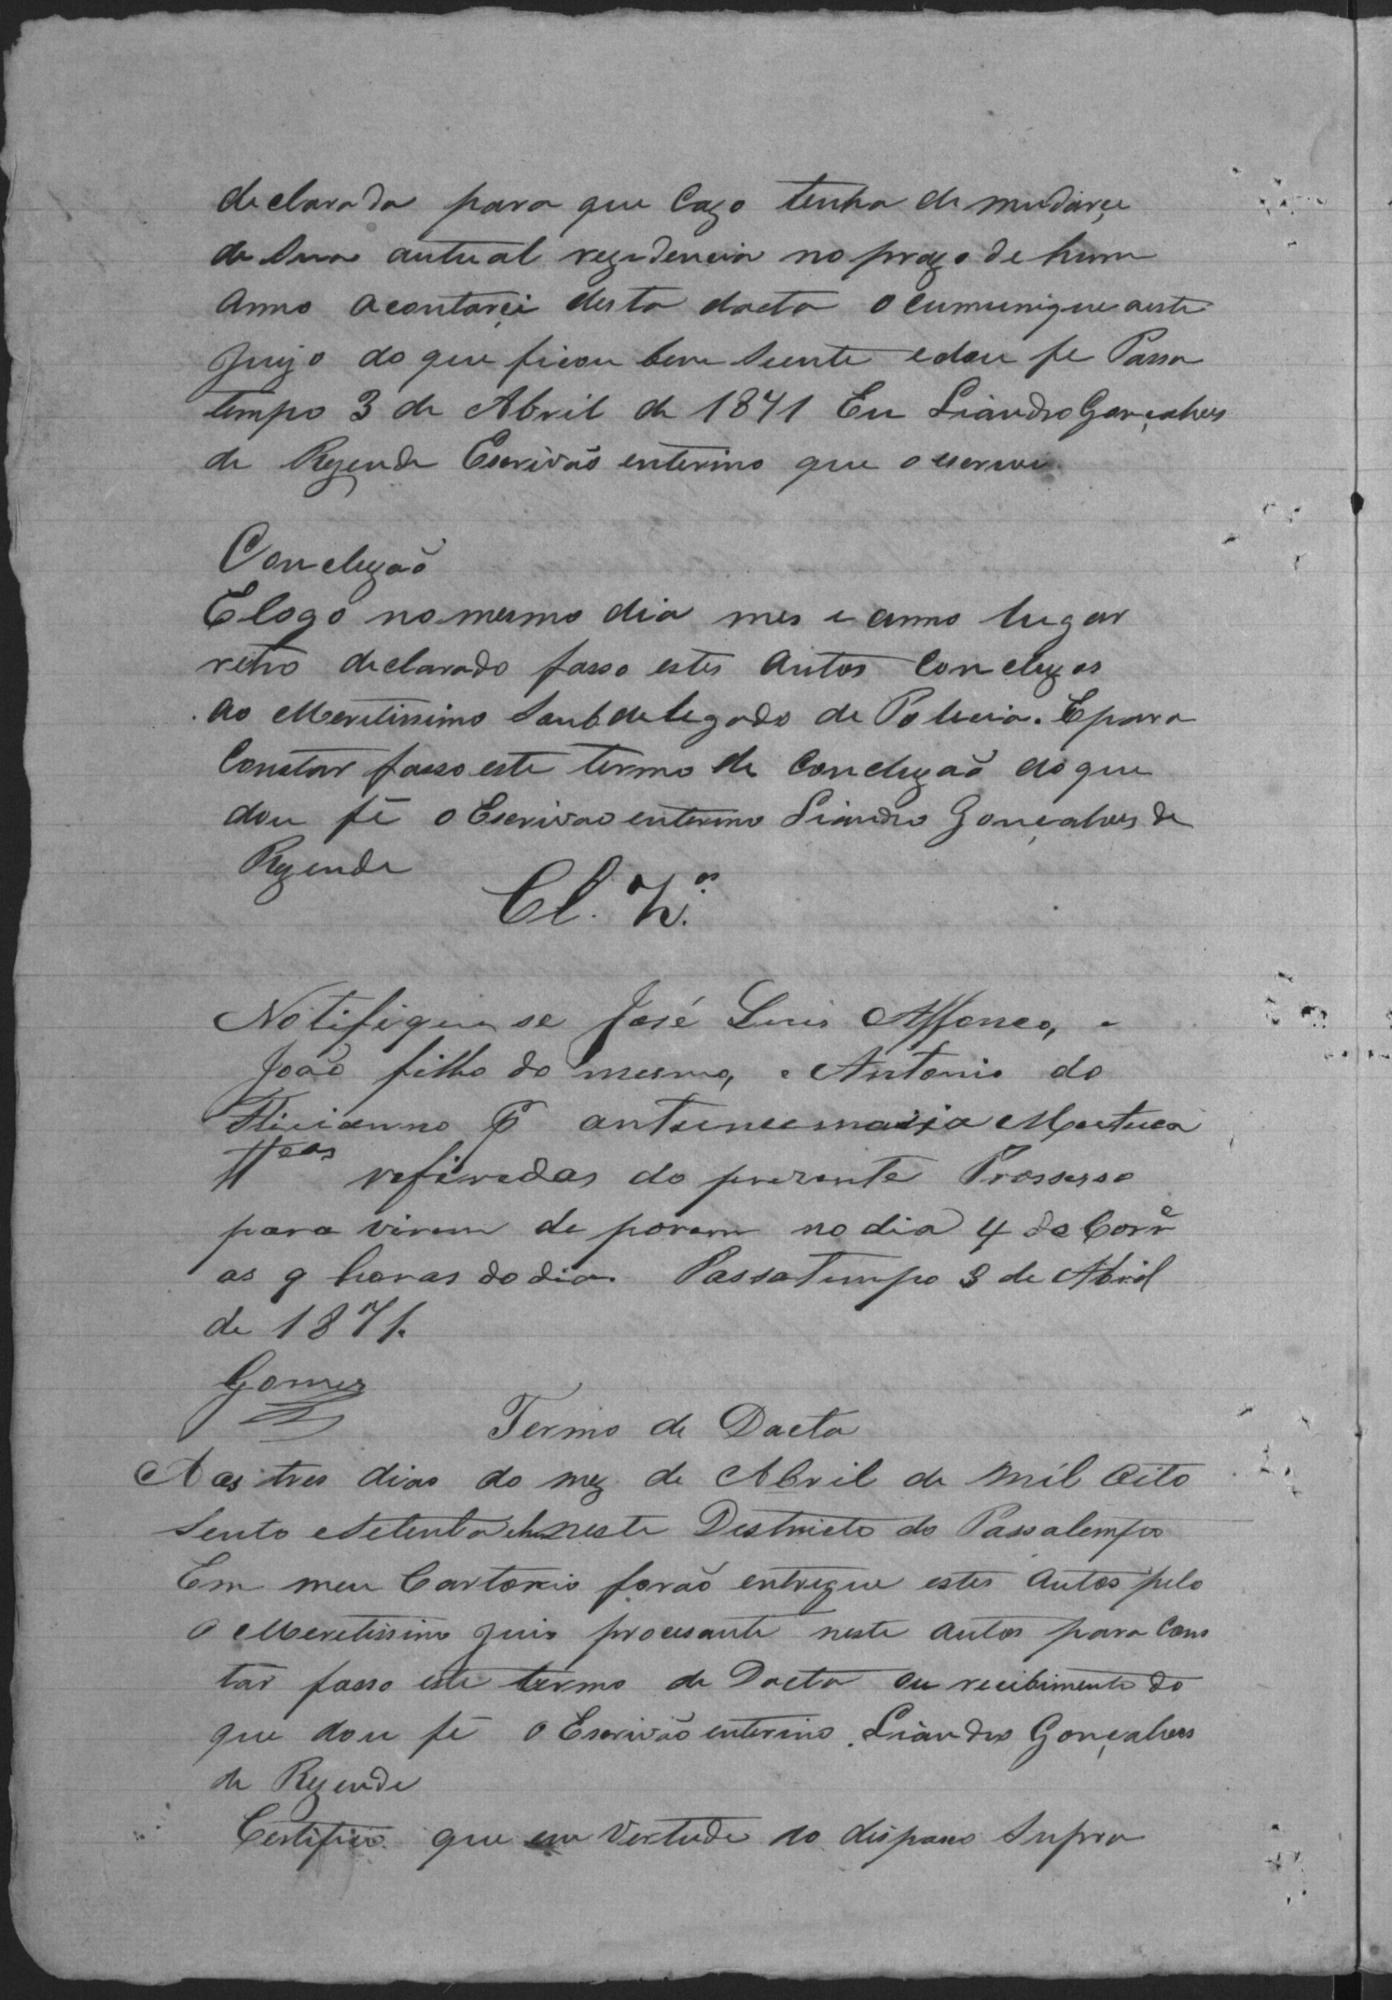 declarada para que cazo tenha de mudarçe
de Sua autual rezidencia no prazo de hum
Anno acontarçi desta dacta o cumunique aeste
Juizo do que ficou bem Siente e dou fe Passa
tempo 3 de Abril de 1871 Eu Liandro Gonçalves
de Rezende Escrivão enterino que o escrevi.
Concluzão
E logo no mesmo dia mes e anno lugar
retro declarado fasso estes Autos Concluzos
ao Meretissimo Soubdelegado de Policia. E para
Constar fasso este termo de Concluzaõ do que
dou fé o Escrivaõ enterino Liandro Gonçalves de
Rezende
Cl.
Notifiquem se José Luis Affonço, e
Joaõ filho do mesmo, e Antonio do
Filicianno
refiredas do prezente Prossesso
para virem de porem no dia 4 do Corr.e
as 9 horas do dia. Passatempo 3 de Abril
de 1871.
Gomes
Termo de Dacta
Aos tres dias do mez de Abril de mil oito
Sento e Setenta e hum neste Destricto do Passatempo
Em meu Cartorio foraõ entregue estes Autos pelo
o Meretissimo Juis procesante neste autos para Cons
tar fasso este termo de Dacta ou recibimento do
que dou fé o Escrivão enterino Liandro Gonçalves
de Rezende
Certifico que em Vertude do dispaxo Supra